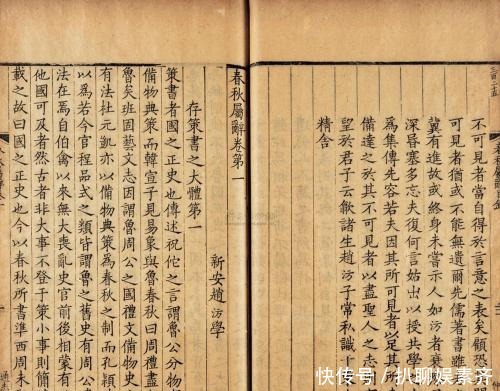 不可見者自得於言意之表矣顧恐
可見者猶或不能無遺爾先儒著書雖
冀有進故或終身未嘗示人如汸者衰
深昏塞多忘夫復何言始出以授共學
爲集傳先容若夫因其所可見者以足其所
備達之於其不可見者以盡聖人之志
望於君子云歙諸生趙汸子常私識于
精舍
春秋屬辭卷第一
新安趙汸學
存策書之大體第一
策書者國之正史也傳述祝佗之言謂魯公分物
備物典策而韓宣子見易象與魯春秋曰周禮
魯矣班固藝文志因謂魯周公之國禮文備物史
有法杜元凱亦以備物典策爲春秋之制而孔穎
以爲若今官程品式之類皆謂魯之舊史有周公
法在焉自伯禽以來無大喪亂史官前後相蒙有
他國可及者然古者非大事不登于策小事則簡
載之故曰國之正史也今以春秋所書準西周未
快传号/扒聊娱素齐